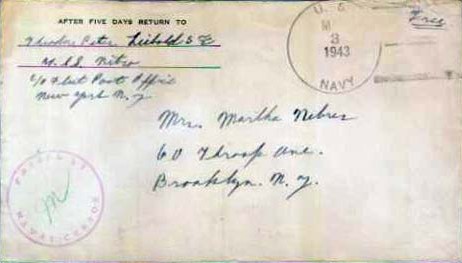 AFTER FIVE DAYS RETURN TO
Theodore Peter Liebold S 2/C
U.S.S. Nitro
C/O Fleet Post Office
New York N.Y.
U. S.
M
3
1943
NAVY
Free
Mrs. Martha Nebres
60 Throop Ave.
Brooklyn. N.Y.
PASSED BY
NAVAL CENSOR